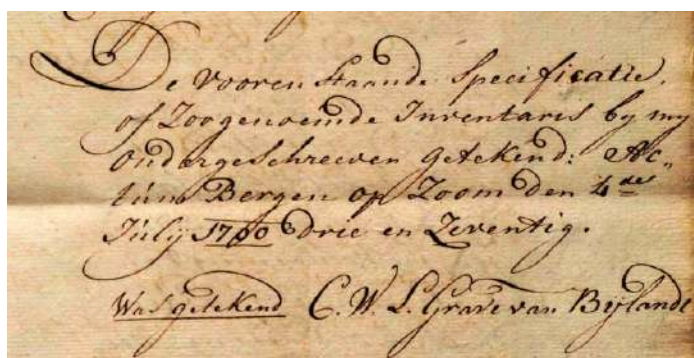 De vooren Staande Specificatie,
of Zoogenoemde Inventaris by my
Ondergeschreeven getekend: Ac„
túm Bergen op Zoom den 4des
Júly 1700 drie en Zeventig.
Was getekend C. W. L. Grave van Bÿlandt